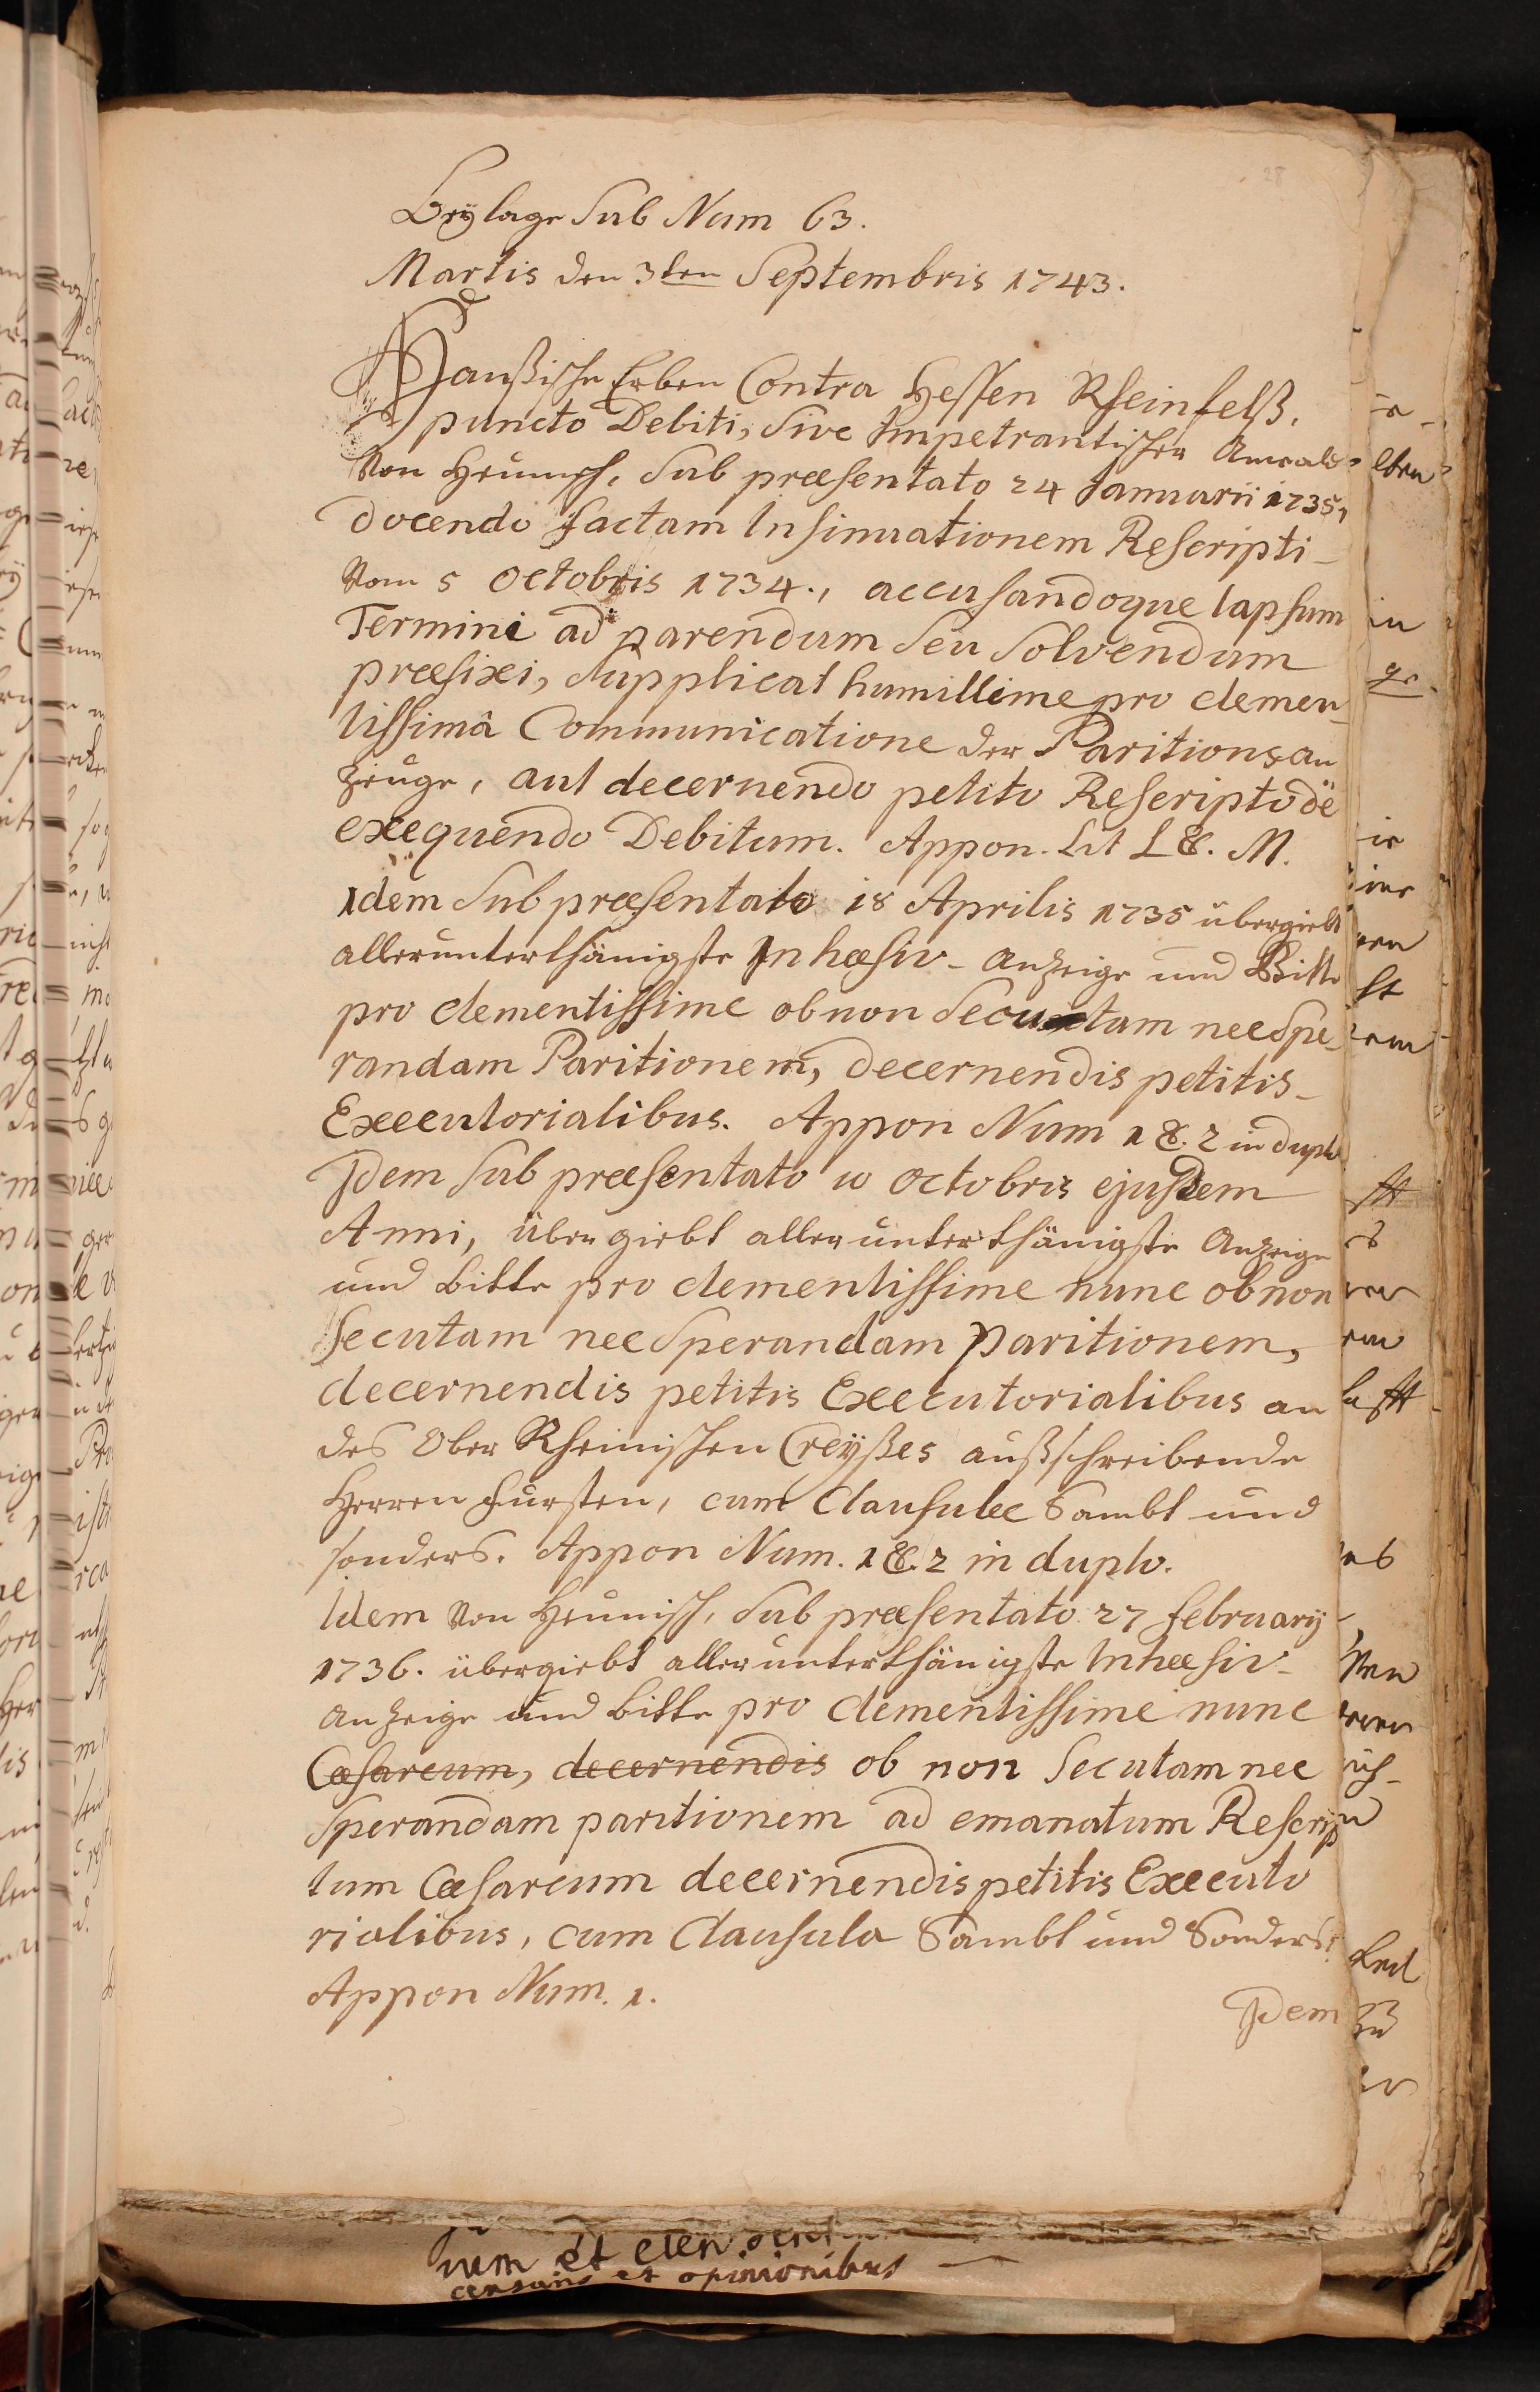 28
Beylage Sub Num 63.
Martis den 3ten Septembris 1743.
Haußische Erben Contra Hessen Rheinfelß,
puncto Debiti, Sive Impetrantischer Anwald
Von Heunisch, Sub præsentato 24 Januarii 1735,
docendo factam Insinuationem Rescripti
Vom 5 Octobris 1734., accusandoque lapsum
Termini ad parendum Seu Solvendum
præfixi, Supplicat humillime pro clemen-
tissimâ Communicatione der Paritions an
zeuge, aut decernendo petito Rescripto de
exequendo Debitum. Appon. Lit L &. M.
Idem Sub præsentato 18 Aprilis 1735 übergiebt
allerunterthänigste Inhæsiv- Anzeige und Bitte
pro clementissime ob non Secutam nec Spe-
randam Paritionem, decernendis petitis
Executorialibus. Appon Num 1 &. 2 in duplo
Idem Sub præsentato 10 Octobris ejusdem
Anni, übergiebt allerunterthänigste Anzeige
und Bitte pro clementissime nunc ob non
Secutam nec Sperandam Paritionem,
decernendis petitis Executorialibus an
des Ober Rheinischen Creyßes außschreibende
Herren Fursten, cum Clausulæ Sambt und
sonders. Appon Num. 1 &. 2 in duplo.
Idem Von Heunisch, Sub præsentato 27 February
1736. übergiebt allerunterthänigste Inhæsiv-
Anzeige und Bitte pro clementissime nunc
Cæsareum, decernendis ob non Secutam nec
Sperandam paritionem ad emanatum Rescrip
tum Cæsareum decernendis petitis Executo
rialibus, cum Clausula Sambt und Sonders.
Appon Num. 1.
Idem
et opinionibus